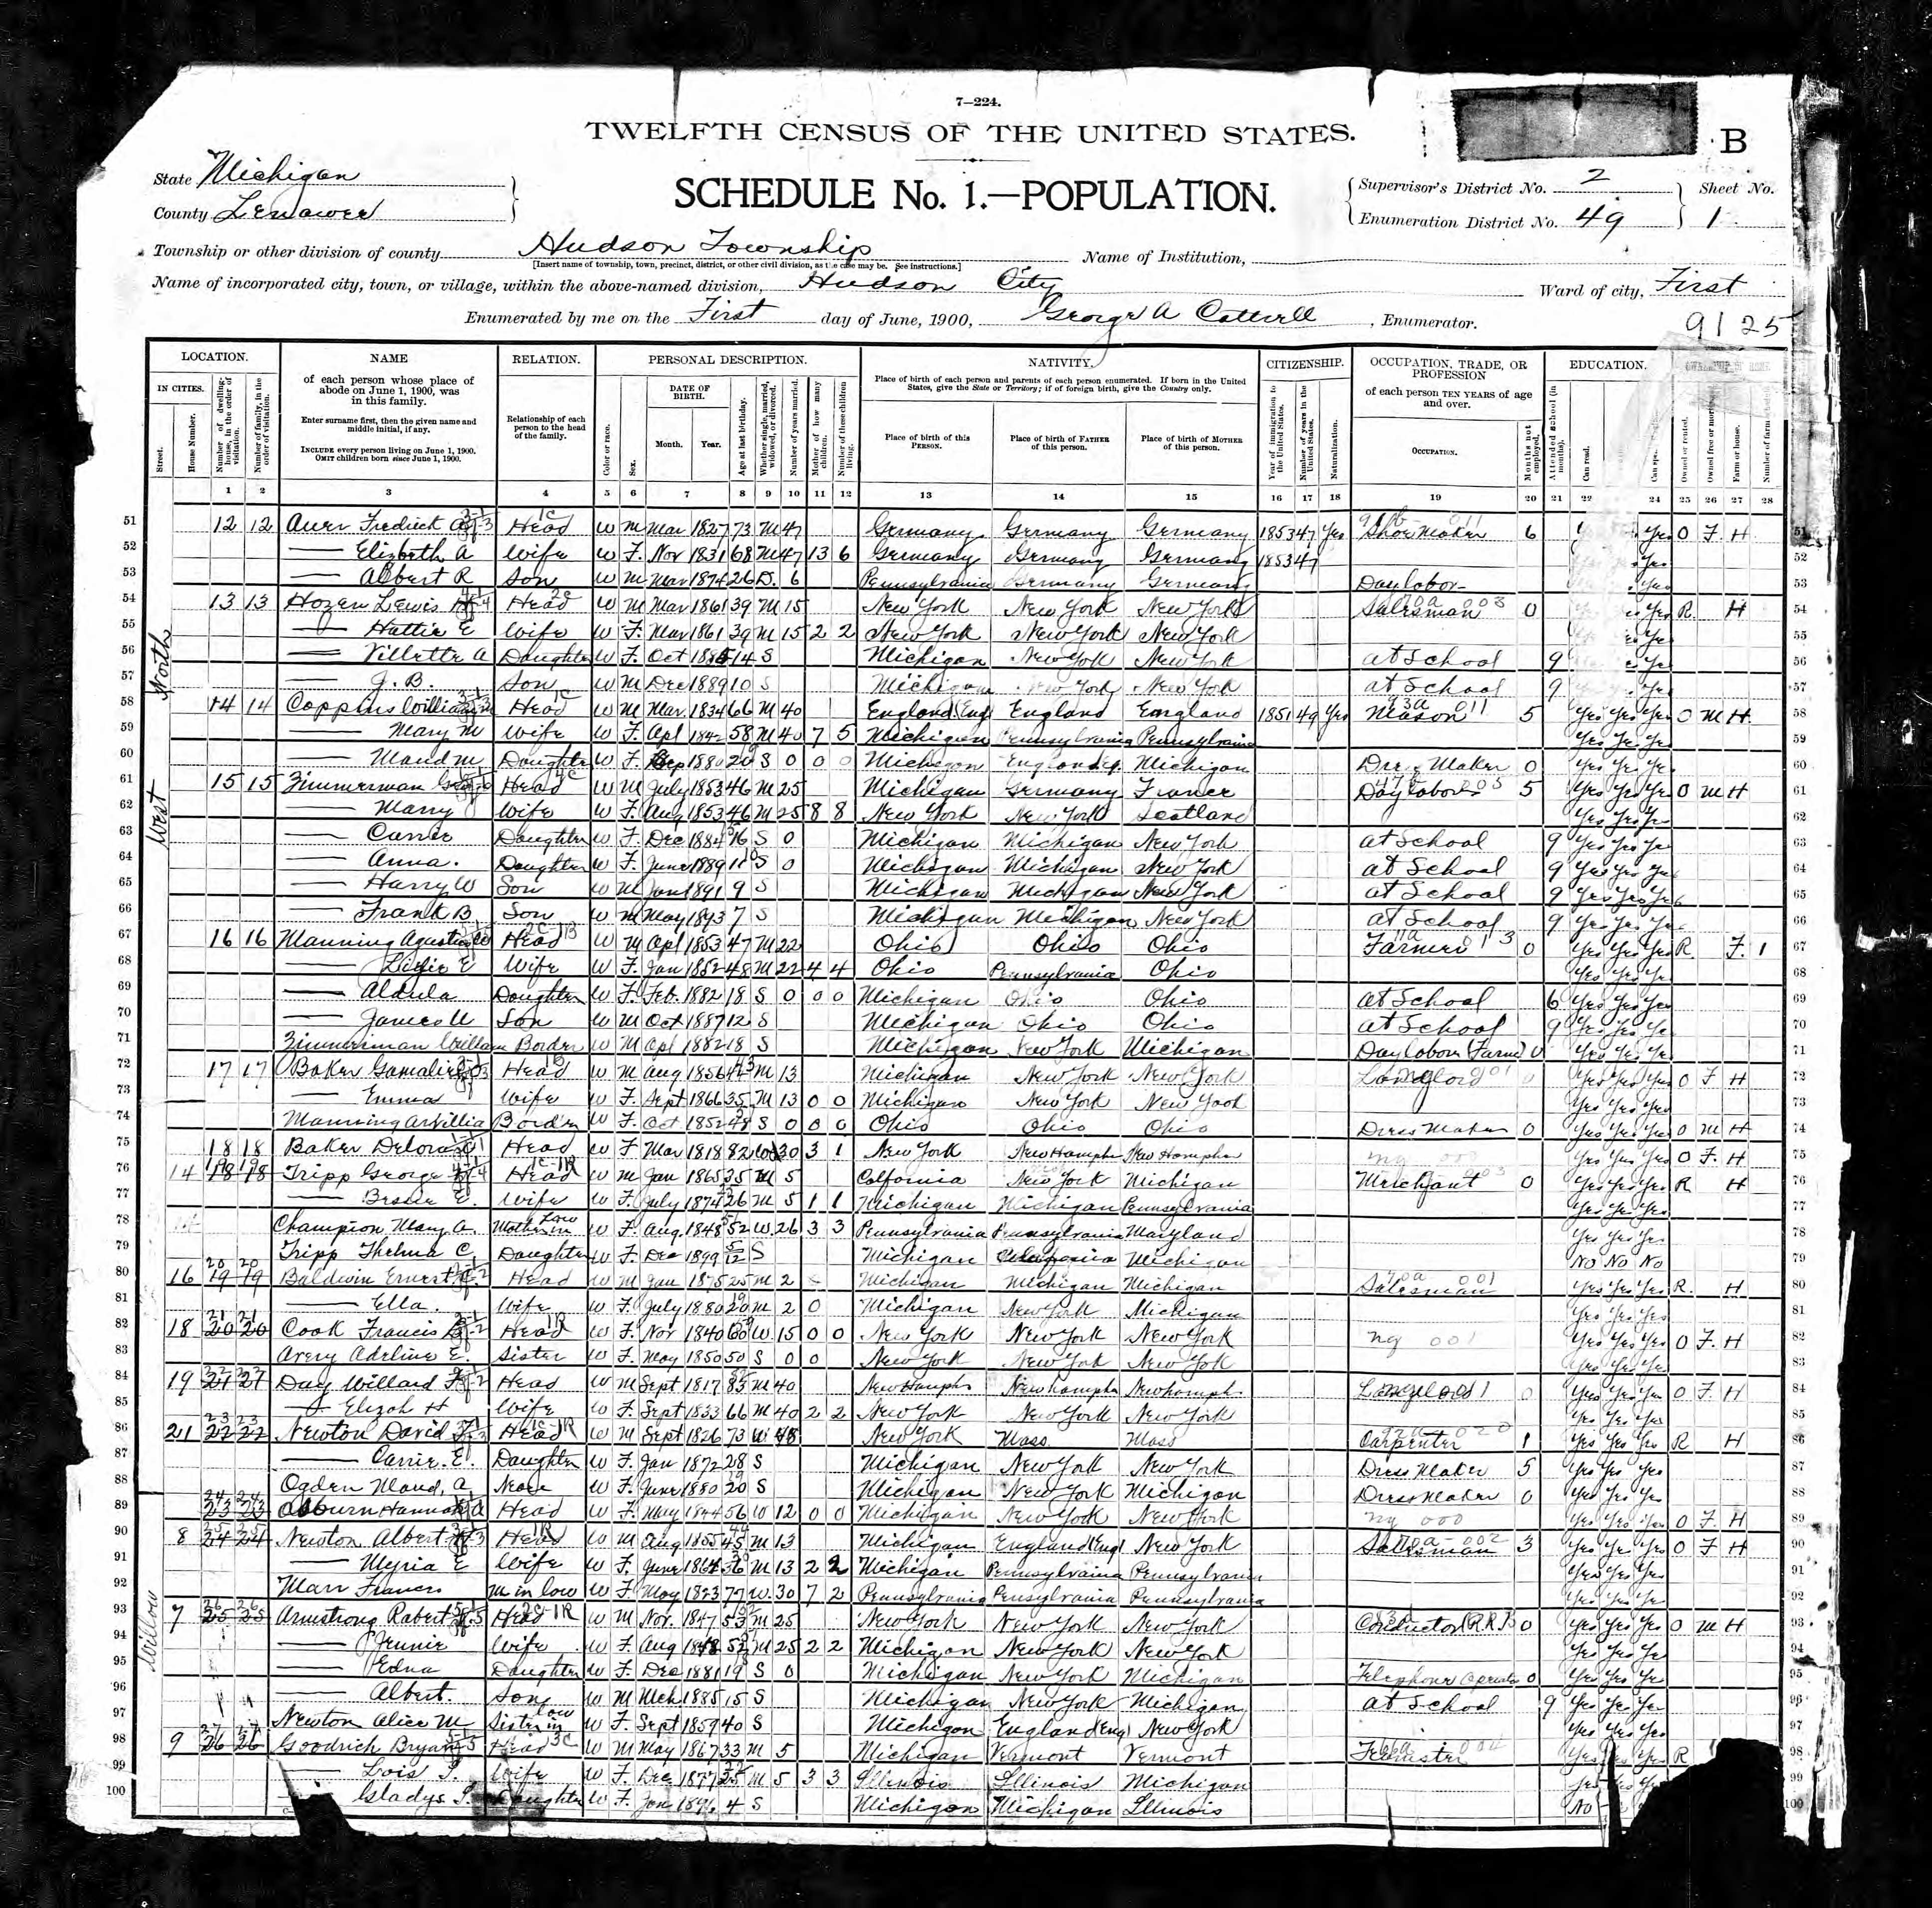 7—224.
TWELFTH CENSUS OF THE UNITED STATES.
B
State Michigan
County Lenawee
SCHEDULE No. 1.—POPULATION.
Supervisor's District No. 2
Enumeration District No. 49
Sheet No. 1
Township or other division of county Hudson Township Name of Institution,
[Insert name of township, town, precinct, district, or other civil division, as the case may be. See instructions.]
Name of incorporated city, town, or village, within the above-named division, Hudson City Ward of city, First
Enumerated by me on the First day of June, 1900, George A Cottrell, Enumerator.
9125
LOCATION. NAME RELATION. PERSONAL DESCRIPTION. NATIVITY. CITIZENSHIP. OCCUPATION, TRADE, OR PROFESSION EDUCATION.
IN CITIES. Street. House Number. Number of dwelling-house, in the order of visitation. Number of family, in the order of visitation.
of each person whose place of abode on June 1, 1900, was in this family.
Enter surname first, then the given name and middle initial, if any.
INCLUDE every person living on June 1, 1900. OMIT children born since June 1, 1900.
Relationship of each person to the head of the family.
Color or race. Sex. DATE OF BIRTH. Month. Year. Age at last birthday. Whether single, married, widowed, or divorced. Number of years married. Mother of how many children. Number of these children living.
Place of birth of each person and parents of each person enumerated. If born in the United States, give the State or Territory; if of foreign birth, give the Country only.
Place of birth of this PERSON. Place of birth of FATHER of this person. Place of birth of MOTHER of this person.
Year of immigration to the United States. Number of years in the United States. Naturalization.
of each person TEN YEARS of age and over. OCCUPATION. Months not employed. Attended school (in months). Can read. Owned or rented. Farm or house.
1 2 3 4 5 6 7 8 9 10 11 12 13 14 15 16 17 18 19 20 21 22 24 25 26 27 28
North West
51 12 12 Auer Fredrick Head W M Mar 1827 73 M 47 Germany Germany Germany 1853 47 Yes Shoe Maker 6 Yes O F H
52 — Elizbeth A Wife W F Nov 1831 68 M 47 13 6 Germany Germany Germany 1853 47 Yes
53 — Albert R Son W M Mar 1874 26 D 6 Pennsylvania Germany Germany Day labor
54 13 13 Hozen Lewis Head W M Mar 1861 39 M 15 New York New York New York Salesman 0 Yes R H
55 — Hattie E Wife W F Mar 1861 39 M 15 2 2 New York New York New York
56 — Villette A Daughter W F Oct 1885 14 S Michigan New York New York at School 9
57 — J. B. Son W M Dec 1889 10 S Michigan New York New York at School 9
58 14 14 Coppins William Head W M Mar 1834 66 M 40 England (Eng) England England 1851 49 Yes Mason 5 Yes Yes Yes O M H
59 — Mary M Wife W F Apl 1842 58 M 40 7 5 Michigan Pennsylvania Pennsylvania Yes Yes Yes
60 — Maud M Daughter W F Sep 1880 S 0 0 0 Michigan England Michigan Dress Maker 0 Yes Yes Yes
61 15 15 Zimmerman Head W M July 1853 46 M 25 Michigan Germany France Day labor 5 Yes Yes Yes O M H
62 — Marry Wife W F Aug 1853 46 M 25 8 8 New York New York Scotland Yes Yes Yes
63 — Carrie Daughter W F Dec 1884 S 0 Michigan Michigan New York at School 9 Yes Yes Yes
64 — Anna. Daughter W F June 1889 S 0 Michigan Michigan New York at School 9 Yes Yes Yes
65 — Harry W Son W M Jan 1891 9 S Michigan Michigan New York at School 9 Yes Yes Yes
66 — Frank B. Son W M May 1893 7 S Michigan Michigan New York at School 9 Yes Yes Yes
67 16 16 Manning Head W M Apl 1853 47 M 22 Ohio Ohio Ohio Farmer 0 Yes Yes Yes R F. 1
68 — Wife W F Jan 1852 48 M 22 4 4 Ohio Pennsylvania Ohio Yes Yes Yes
69 — Aldula Daughter W F Feb. 1882 18 S 0 0 0 Michigan Ohio Ohio at School 6 Yes Yes Yes
70 — James Son W M Oct 1887 12 S Michigan Ohio Ohio at School 9 Yes Yes Yes
71 Zimmerman William Border W M Apl 1882 18 S Michigan New York Michigan Day labour (Farm) 0 Yes Yes Yes
72 17 17 Baker Head W M Aug 1856 M 13 Michigan New York New York Landlord Yes Yes Yes O F H
73 — Emma Wife W F Sept 1866 35 M 13 0 0 Michigan New York New York Yes Yes Yes
74 Manning Arvillia Border W F Oct 1852 48 S 0 0 0 Ohio Ohio Ohio Dress Maker 0 Yes Yes Yes O M H
75 18 18 Baker Head W F Mar 1818 82 Wd 30 3 1 New York New Hampshr New Hampshr Yes Yes Yes O F. H
76 14 18 18 Tripp George Head W M Jan 1865 35 M 5 Calfornia New York Michigan Merchant 0 Yes Yes Yes R H
77 — Bessie E. Wife W F July 1874 26 M 5 1 1 Michigan Michigan Pennsylvania Yes Yes Yes
78 Champion Mary A. Mother in Law W F Aug. 1848 52 W. 26 3 3 Pennsylvania Pennsylvania Maryland Yes Yes Yes
79 Tripp Thelma C. Daughter W F Dec 1899 5/12 S Michigan Michigan No No No
80 16 19 19 Baldwin Ernest Head W M Jan 1875 25 M 2 Michigan Michigan Michigan Salesman Yes Yes Yes R. H
81 — Ella. Wife W F July 1880 20 M 2 0 Michigan New York Michigan Yes Yes Yes
82 18 20 20 Cook Francis Head W F Nov 1840 60 W. 15 0 0 New York New York New York Yes Yes Yes O F. H
83 Avery Adeline E. Sister W F May 1850 50 S 0 0 New York New York New York Yes Yes Yes
84 19 Day Willard Head W M Sept 1817 M 40 New Hampshr New Hampshr New Hampshr Landlord 0 Yes Yes Yes O F. H
85 — Elizah H Wife W F Sept 1833 66 M 40 2 2 New York New York New York Yes Yes Yes
86 21 22 22 Newton David Head W M Sept 1826 73 48 New York Mass Mass Carpenter 1 Yes Yes Yes R H
87 — Carrie. E. Daughter W F Jan 1872 28 S Michigan New York New York Dress Maker 5 Yes Yes Yes
88 Ogden Maud, A Neice W F June 1880 20 S Michigan New York Michigan Dress Maker 0 Yes Yes Yes
89 23 23 Osburn Hannah Head W F May 1844 56 W 12 0 0 Michigan New York New York Yes Yes Yes O F. H
90 8 24 24 Newton Albert Head W M Aug 1855 45 M 13 Michigan England (Eng) New York Salesman 3 Yes Yes Yes O F H
91 — Myria E Wife W F June 1864 36 M 13 2 2 Michigan Pennsylvania Pennsylvania Yes Yes Yes
92 Marr Frances M in law W F May 1823 77 W. 30 7 2 Pennsylvania Pensylvania Pennsylvania Yes Yes Yes
Willow
93 7 25 25 Armstrong Robert Head W M Nov. 1847 53 M 25 New York New York New York Conductor (R.R.) 0 Yes Yes Yes O M H
94 — Jennie Wife W F Aug 1848 52 M 25 2 2 Michigan New York New York Yes Yes Yes
95 — Edna Daughter W F Dec 1881 19 S 0 Michigan New York Michigan Telephone Operator 0 Yes Yes Yes
96 — Albert. Son W M Mch 1885 15 S Michigan New York Michigan at School 9 Yes Yes Yes
97 Newton Alice M Sister in law W F Sept 1859 40 S Michigan England (Eng) New York Yes Yes Yes
98 9 26 26 Goodrich Bryan Head W M May 1867 33 M 5 Michigan Vermont Vermont Teamster Yes Yes Yes R
99 — Lois Wife W F Dec 1877 M 5 3 3 Illinois Illinois Michigan
100 — Gladys Daughter W F Jan 1896 4 S Michigan Michigan Illinois No